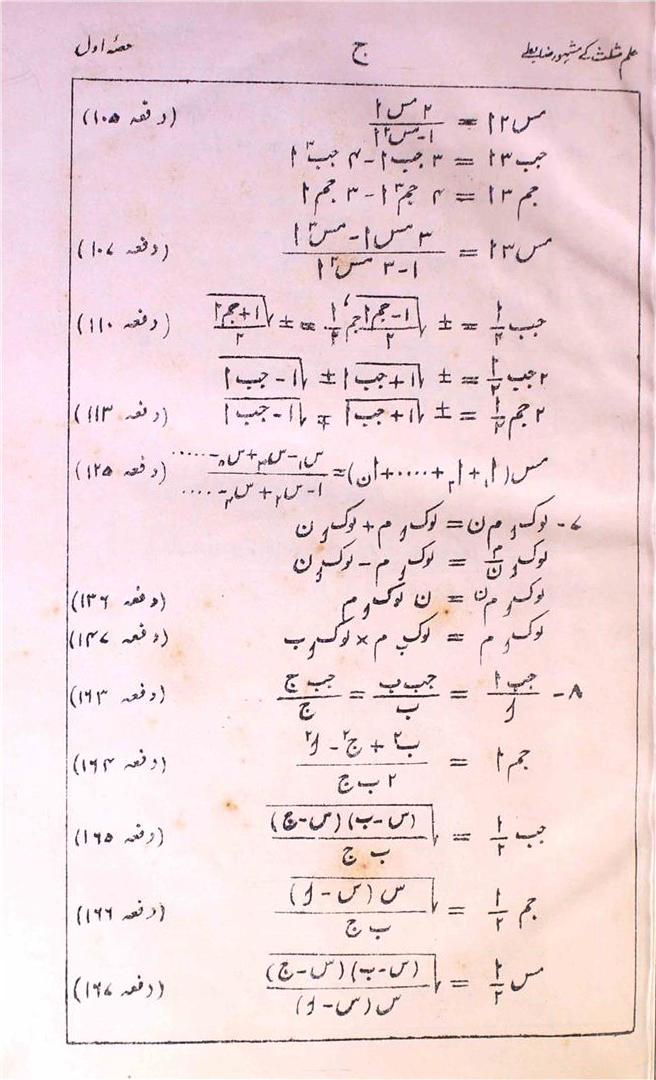 علم مثلث کے مشہور ضابطے ج حصّہ اول
مس ۲ا = ۲ مس ا / ۱-مس۲ا (دفعہ ۱۰۵)
جب ۳ا = ۳ جب ا - ۴ جب۳ا
جم ۳ا = ۴ جم۳ا - ۳ جم ا
مس ۳ا = ۳ مس ا - مس۳ا / ۱-۳ مس۲ا (دفعہ ۱۰۷)
جب ا/۲ = ± √(۱-جم ا / ۲)، جم ا/۲ = ± √(۱+جم ا / ۲) (دفعہ ۱۱۰)
۲ جب ا/۲ = ± √(۱+جب ا) ± √(۱-جب ا)
۲ جم ا/۲ = ± √(۱+جب ا) ∓ √(۱-جب ا) (دفعہ ۱۱۳)
مس (ا۱ + ا۲ + ..... + ان) = س۱-س۳+س۵-..... / ۱-س۲+س۴-..... (دفعہ ۱۲۵)
۷- لوک ا م ن = لوک ا م + لوک ا ن
لوک ا م/ن = لوک ا م - لوک ا ن
لوک ا م^ن = ن لوک ا م (دفعہ ۱۳۶)
لوک ا م = لوک ب م × لوک ا ب (دفعہ ۱۴۷)
۸- جب ا / ا = جب ب / ب = جب ج / ج (دفعہ ۱۶۳)
جم ا = ب۲ + ج۲ - ا۲ / ۲ ب ج (دفعہ ۱۶۴)
جب ا/۲ = √((س-ب)(س-ج) / ب ج) (دفعہ ۱۶۵)
جم ا/۲ = √(س (س-ا) / ب ج) (دفعہ ۱۶۶)
مس ا/۲ = √((س-ب)(س-ج) / س (س-ا)) (دفعہ ۱۶۷)